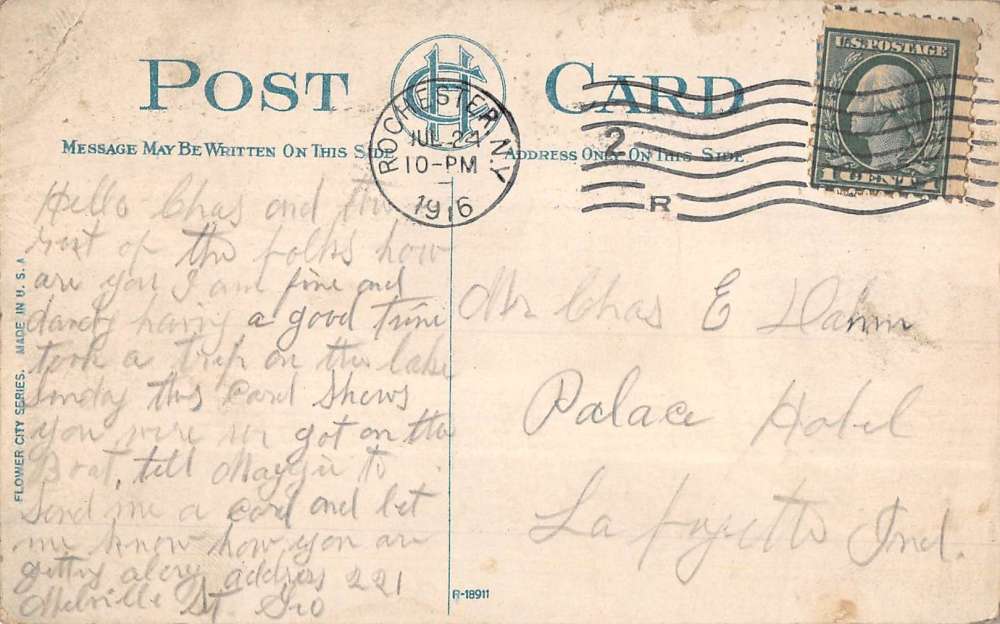 POST CARD
MESSAGE MAY BE WRITTEN ON THIS SIDE
ADDRESS ONLY ON THIS SIDE
ROCHESTER, N.Y.
JUL 24
10-PM
1916
2
R
U.S. POSTAGE
1 CENT 1
Hello Chas and the
rest of the folks how
are you I am fine and
dandy having a good time
took a trip on the lake
Sunday this card shows
you were we got on the
Boat, tell Maggie to
Send me a card and let
me know how you are
getting along address 221
Melville St Geo
Mr Chas E Damm
Palace Hotel
La fayette Ind.
FLOWER CITY SERIES. MADE IN U. S. A
R-18911